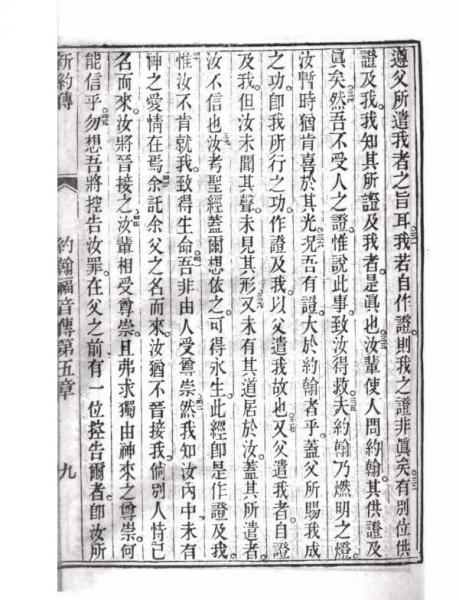 遵父所遣我者之旨耳。我若自作證。則我之證非眞矣。有別位供
證及我。我知其所證及我者是眞也。汝輩使人問約翰。其供證及
眞矣。然吾不受人之證。惟說此事。致汝得救。夫約翰乃燃明之燈。
汝暫時猶肯喜於其光。況吾有證。大於約翰者乎。蓋父所賜我成
之功。卽我所行之功。作證及我。以父遣我故也。又父遣我者自證
及我。但汝未聞其聲。未見其形。又未有其道居於汝。蓋其所遣者
汝不信也。汝考聖經。蓋爾想依之可得永生。此經卽是作證及我。
惟汝不肯就我。致得生命。吾非由人受尊崇。然我知汝內中未有
神之愛情在焉。余託余父之名而來。汝猶不晉接我。倘別人恃己
名而來。汝將晉接之。汝輩相受尊崇。且弗求獨由神來之尊崇。何
能信乎。勿想吾將控告汝罪。在父之前有一位控告爾者。卽汝所
新約傳 約翰福音傳第五章 九